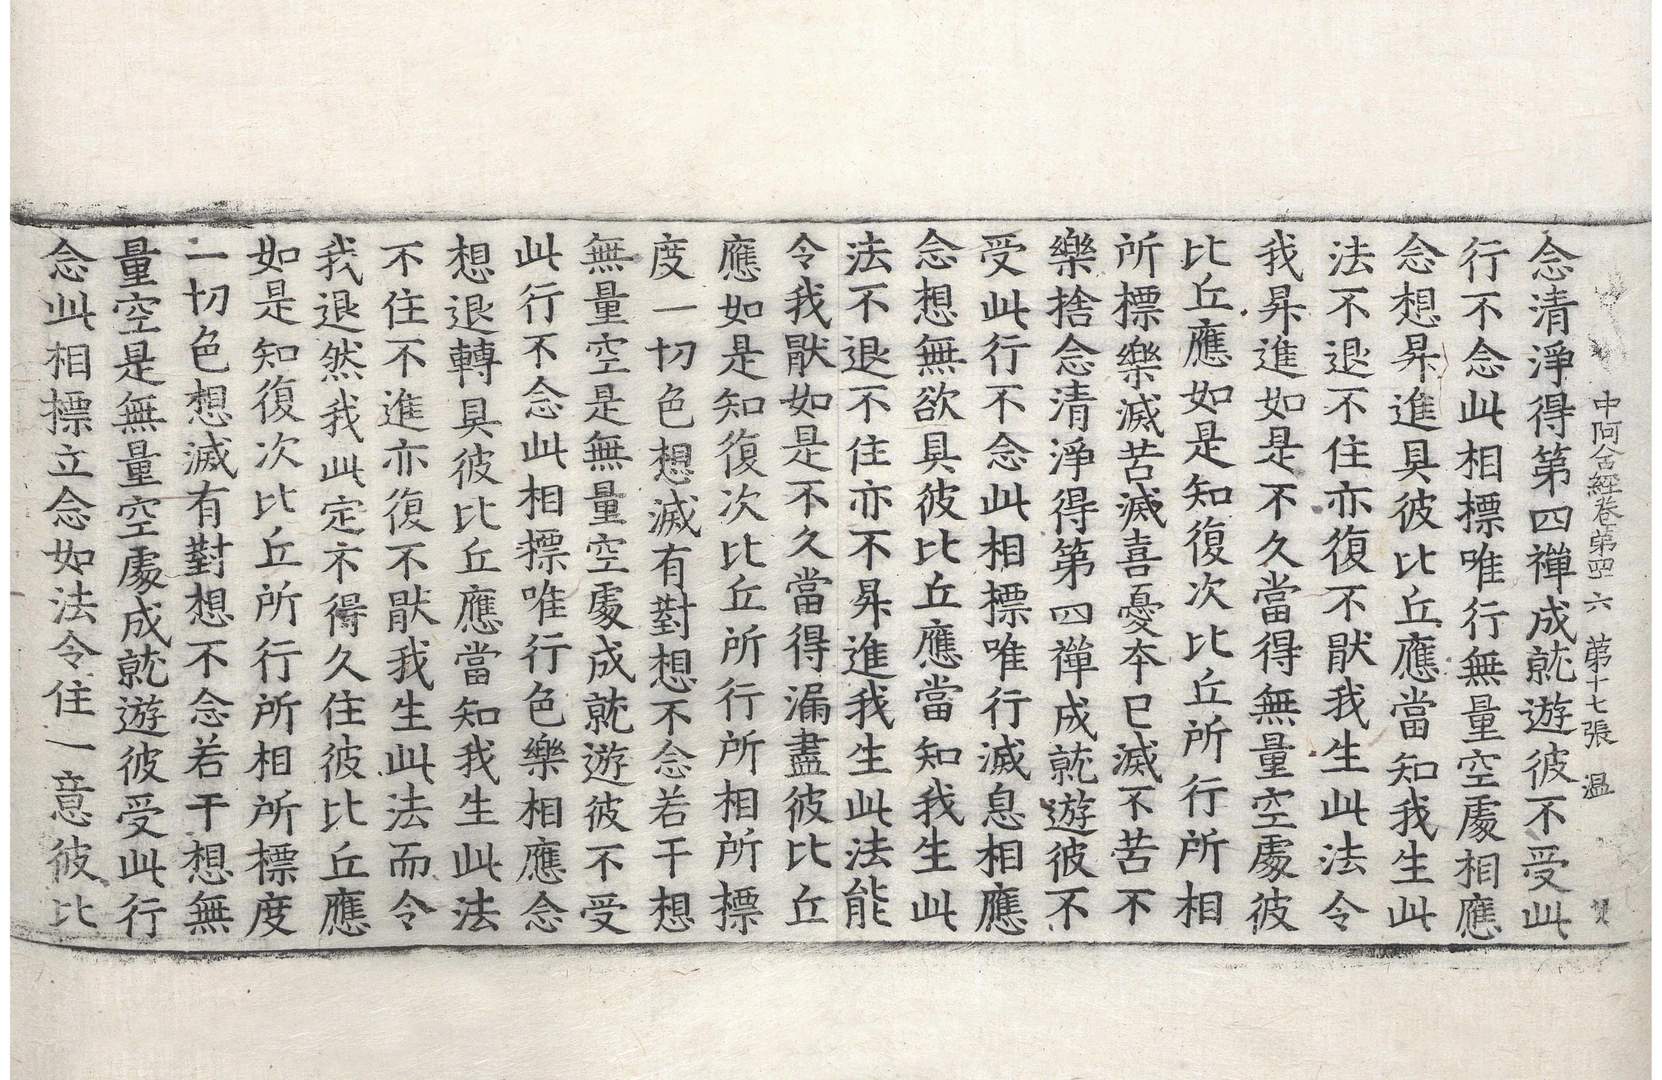 中阿含經卷第四十六 第十七張 溫
念清淨得第四禪成就遊彼不受此
行不念此相標唯行無量空處相應
念想昇進具彼比丘應當知我生此
法不退不住亦復不猒我生此法令
我昇進如是不久當得無量空處彼
比丘應如是知復次比丘所行所相
所標樂滅苦滅喜憂本已滅不苦不
樂捨念清淨得第四禪成就遊彼不
受此行不念此相標唯行滅息相應
念想無欲具彼比丘應當知我生此
法不退不住亦不昇進我生此法能
令我猒如是不久當得漏盡彼比丘
應如是知復次比丘所行所相所標
度一切色想滅有對想不念若干想
無量空是無量空處成就遊彼不受
此行不念此相標唯行色樂相應念
想退轉具彼比丘應當知我生此法
不住不進亦復不猒我生此法而令
我退然我此定不得久住彼比丘應
如是知復次比丘所行所相所標度
一切色想滅有對想不念若干想無
量空是無量空處成就遊彼受此行
念此相標立念如法令住一意彼比